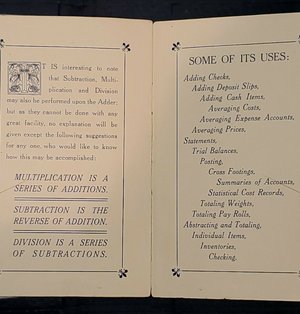 IT IS interesting to note
that Subtraction, Multi-
plication and Division
may also be performed upon the Adder;
but as they cannot be done with any
great facility, no explanation will be
given except the following suggestions
for any one, who would like to know
how this may be accomplished:
MULTIPLICATION IS A
SERIES OF ADDITIONS.
SUBTRACTION IS THE
REVERSE OF ADDITION.
DIVISION IS A SERIES
OF SUBTRACTIONS.
SOME OF ITS USES:
Adding Checks,
Adding Deposit Slips,
Adding Cash Items,
Averaging Costs,
Averaging Expense Accounts,
Averaging Prices.
Statements,
Trial Balances,
Posting,
Cross Footings,
Summaries of Accounts,
Statistical Cost Records,
Totaling Weights,
Totaling Pay Rolls.
Abstracting and Totaling,
Individual Items,
Inventories,
Checking.